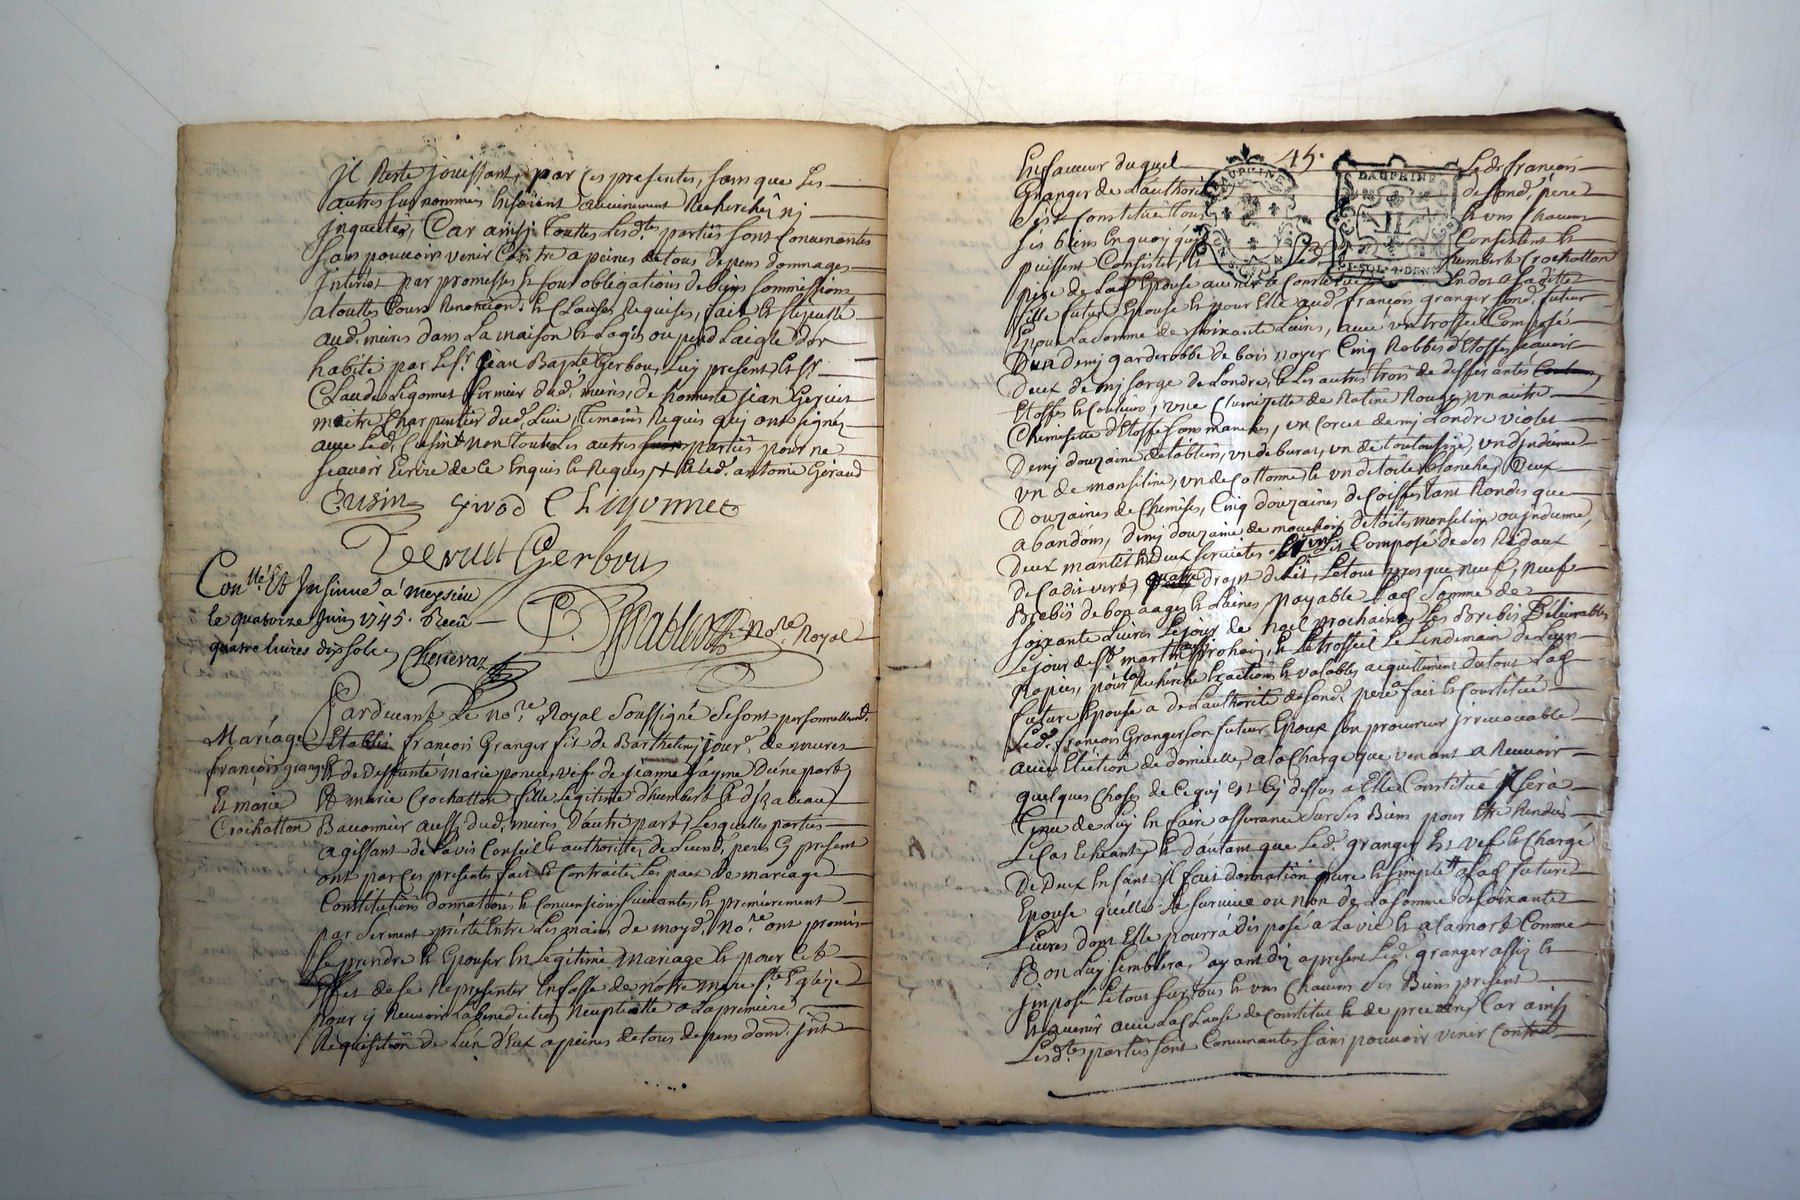 il Reste jouissant, par ces presentes, sans que les
autres surnommés luy soient aucunement Rechercher ni
inquieter, Car ainsi Touttes Lesd.tes partiës sont Convenantes
sans pouvoir venir Contre a peines de tous depens dommages
Interest par promesses et sous obligations de biens sommissions
a touttes Cours Renonçon.s et Clauses Requises, fait et
aud. mures dans La maison et Logis ou pend Laigle dor
habité par Le s.r Jean Bapte Gerbou, Luy present et s.r
Claude Ligonnet fermier dud. mures, de honneste jean
maitre Charpentier dud. Lieu, Temoins Requis qui ont signés
avec Led. Cusin et non Touttes Les autres partiës pour ne
sçavoir Ecrire de ce Enquis et Requis + et Led. antoine Geraud
Cusin
Gerbou
Con.llé Et Insinué á meysieu
le quatorze Juin 1745. Reçu
quatre livres dix sols Chenevaz
No.re Royal
Pardevant Le no.re Royal soussigné se sont personnellem.t
Mariage
Etablis françois Granger fis de Barthelemj jour.r de mures
françois granger
et de Deffunte marie poncet, vef de jeanne fayme D'une part
Et marie
Et marie Crochatton fille Legitime d'humbert Et d'Izabeau
Crochatton
Bavonnier aussi dud. mures D'autre part, Lesquelles partiës
agissant de L'avis Conseil et authorité de Leurd. peres Cy present
ont par ces presentes fait et Contracté Les pact de mariage
Constitutions donnations et Convensions suivantes, et premierement
par serment prêté Entre Les mains de moyd. No.re ont promis
se prendre et Epouser En Légitime mariage et pour cet
Effet de se Représenter En fasse de nôtre mere s.te Eglize
pour y Recevoir La Benediction Neuptialle a La premiere
Requisition de L'un d'Eux a peines de tous depens dom. jnt
45.
En faveur duquel Le d. françois
Granger de L'authorité de sond. pere
s'est Constitué Tous et uns Chacuns
ses biens En quoy qu'ils Consistent et
puissent Consister, et Led. humbert Crochatton
pere de Lad. Epouse avenir a Constitué En dot a sa ditte
fille futur Epouse et pour Elle aud. françois granger sond. futur
Epoux La somme de soixante Livres, avec un trossel Composé
D'un demj garderobbe de bois noyer Cinq Robbes d'Etoffes sçavoir
Deux de mj sarge de Londre, et Les autres trois de differantes
Etoffes et Couleurs, une Chemizette de Ratine Rouge, un autre
Chemisette d'Etoffe sans manches, un Corcet demj Londre violet
Demj douzaine de tabliers, un de burat, un de toutousine, un d'jndienne
un de monseline, un de Cottonne et un de toile blanche, Deux
Douzaines de Chemises, Cinq douzaines de Coiffes tant Rondes que
abandons, demj douzaine de mouchoirs de toile monseline ou jndienne,
Deux mantils Deux serviettes, Composé de ses Rideaux
de Cadis verd, draps de Lit, Le tout presque neuf, neuf
Brebis de bon aage et Laines, payable Lad. somme de
soixante Livres Le jour de noel prochain, Les Brebis Delivrables
Le jour de s.t martin prochain, et Le trossel Le Lendemain de Leurs
Nopces, pour La Recherche Exactions et valables acquittement du tout Lad.
future Epouse a de L'authorité de sond. pere a fait et Constitué
Led. françois Granger son futur Epoux son procureur jrrevocable
avec Election de domicille, a La Charge que venant a Recevoir
quelques Choses de Ce qui est Cy dessus a Elle Constitué jl sera
Tenu de Luy En faire assurance sur ses Biens pour Etre Rendus
Le Cas Echeant, et d'autant que Led. granger Est vef et Chargé
De Deux Enfans jl fait donnation pure et simple a Lad. future
Epouse quelle Le survive ou non de La somme de soixante
Livres dont Elle pourra disposé a La vie et a La mort Comme
Bon Luy semblera, ayant dez apresent Led. granger assis et
jmposé Le tout sur tous et uns Chacuns ses Biens present
Et avenir avec La Clause de Constitut et de precaire, Car ainsi
Lesd.tes partiës sont Convenantes sans pouvoir venir Contre